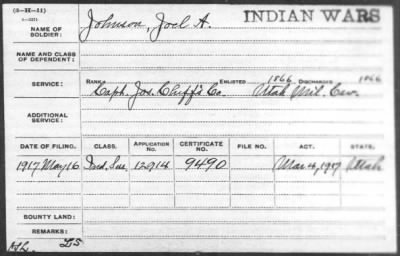 (3-H-11)
6-2221
INDIAN WARS
NAME OF SOLDIER: Johnson, Joel A.
NAME AND CLASS OF DEPENDENT:
SERVICE: RANK ENLISTED 1866 DISCHARGED 1866
Capt. Jos. Cluff's Co. Utah Mil. Cav.
ADDITIONAL SERVICE:
DATE OF FILING. CLASS. APPLICATION No. CERTIFICATE No. FILE NO. ACT. STATE.
1917 May 16 Ind. Sur. 12914 9490 Mar 4, 1917 Utah
BOUNTY LAND:
REMARKS: